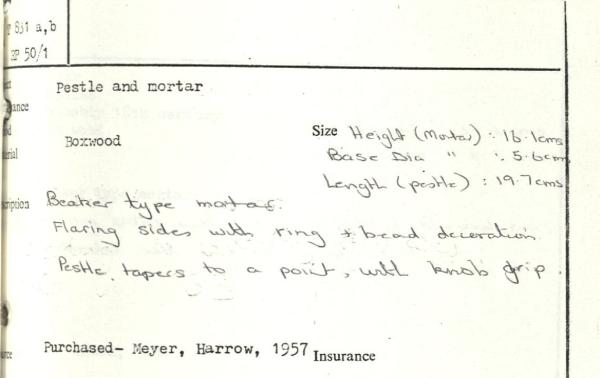 831 a,b
50/1
Pestle and mortar
Boxwood
Size Height (Mortar) : 16.1cms
Base Dia " : 5.6cm
Length (pestle) : 19.7cms
Beaker type mortar.
Flaring sides with ring + bead decoration.
Pestle tapers to a point, with knob grip.
Purchased- Meyer, Harrow, 1957
Insurance